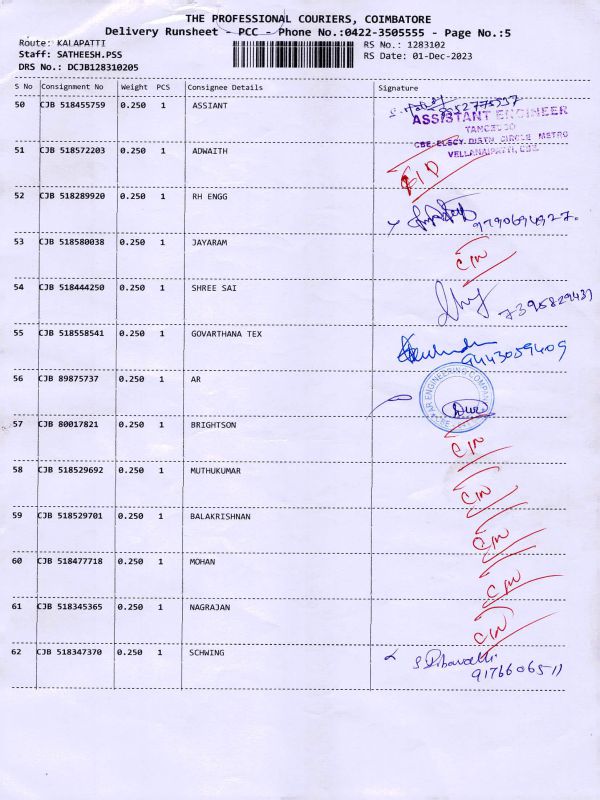 THE PROFESSIONAL COURIERS, COIMBATORE
Delivery Runsheet - PCC - Phone No.:0422-3505555 - Page No.:5
Route: KALAPATTI
RS No.: 1283102
Staff: SATHEESH.PSS
RS Date: 01-Dec-2023
DRS No.: DCJB128310205
S No Consignment No Weight PCS Consignee Details Signature
50 CJB 518455759 0.250 1 ASSIANT
ASSISTANT ENGINEER
TANGEDCO
CBE. ELECY. DISTN. CIRCLE METRO
51 CJB 518572203 0.250 1 ADWAITH
52 CJB 518289920 0.250 1 RH ENGG 9790694927.
53 CJB 518580038 0.250 1 JAYARAM C/N
54 CJB 518444250 0.250 1 SHREE SAI 7395829437
55 CJB 518558541 0.250 1 GOVARTHANA TEX 9443059409
56 CJB 89875737 0.250 1 AR
57 CJB 80017821 0.250 1 BRIGHTSON C/N
58 CJB 518529692 0.250 1 MUTHUKUMAR C/N
59 CJB 518529701 0.250 1 BALAKRISHNAN C/N
60 CJB 518477718 0.250 1 MOHAN C/N
61 CJB 518345365 0.250 1 NAGRAJAN C/N
62 CJB 518347370 0.250 1 SCHWING
9176606511